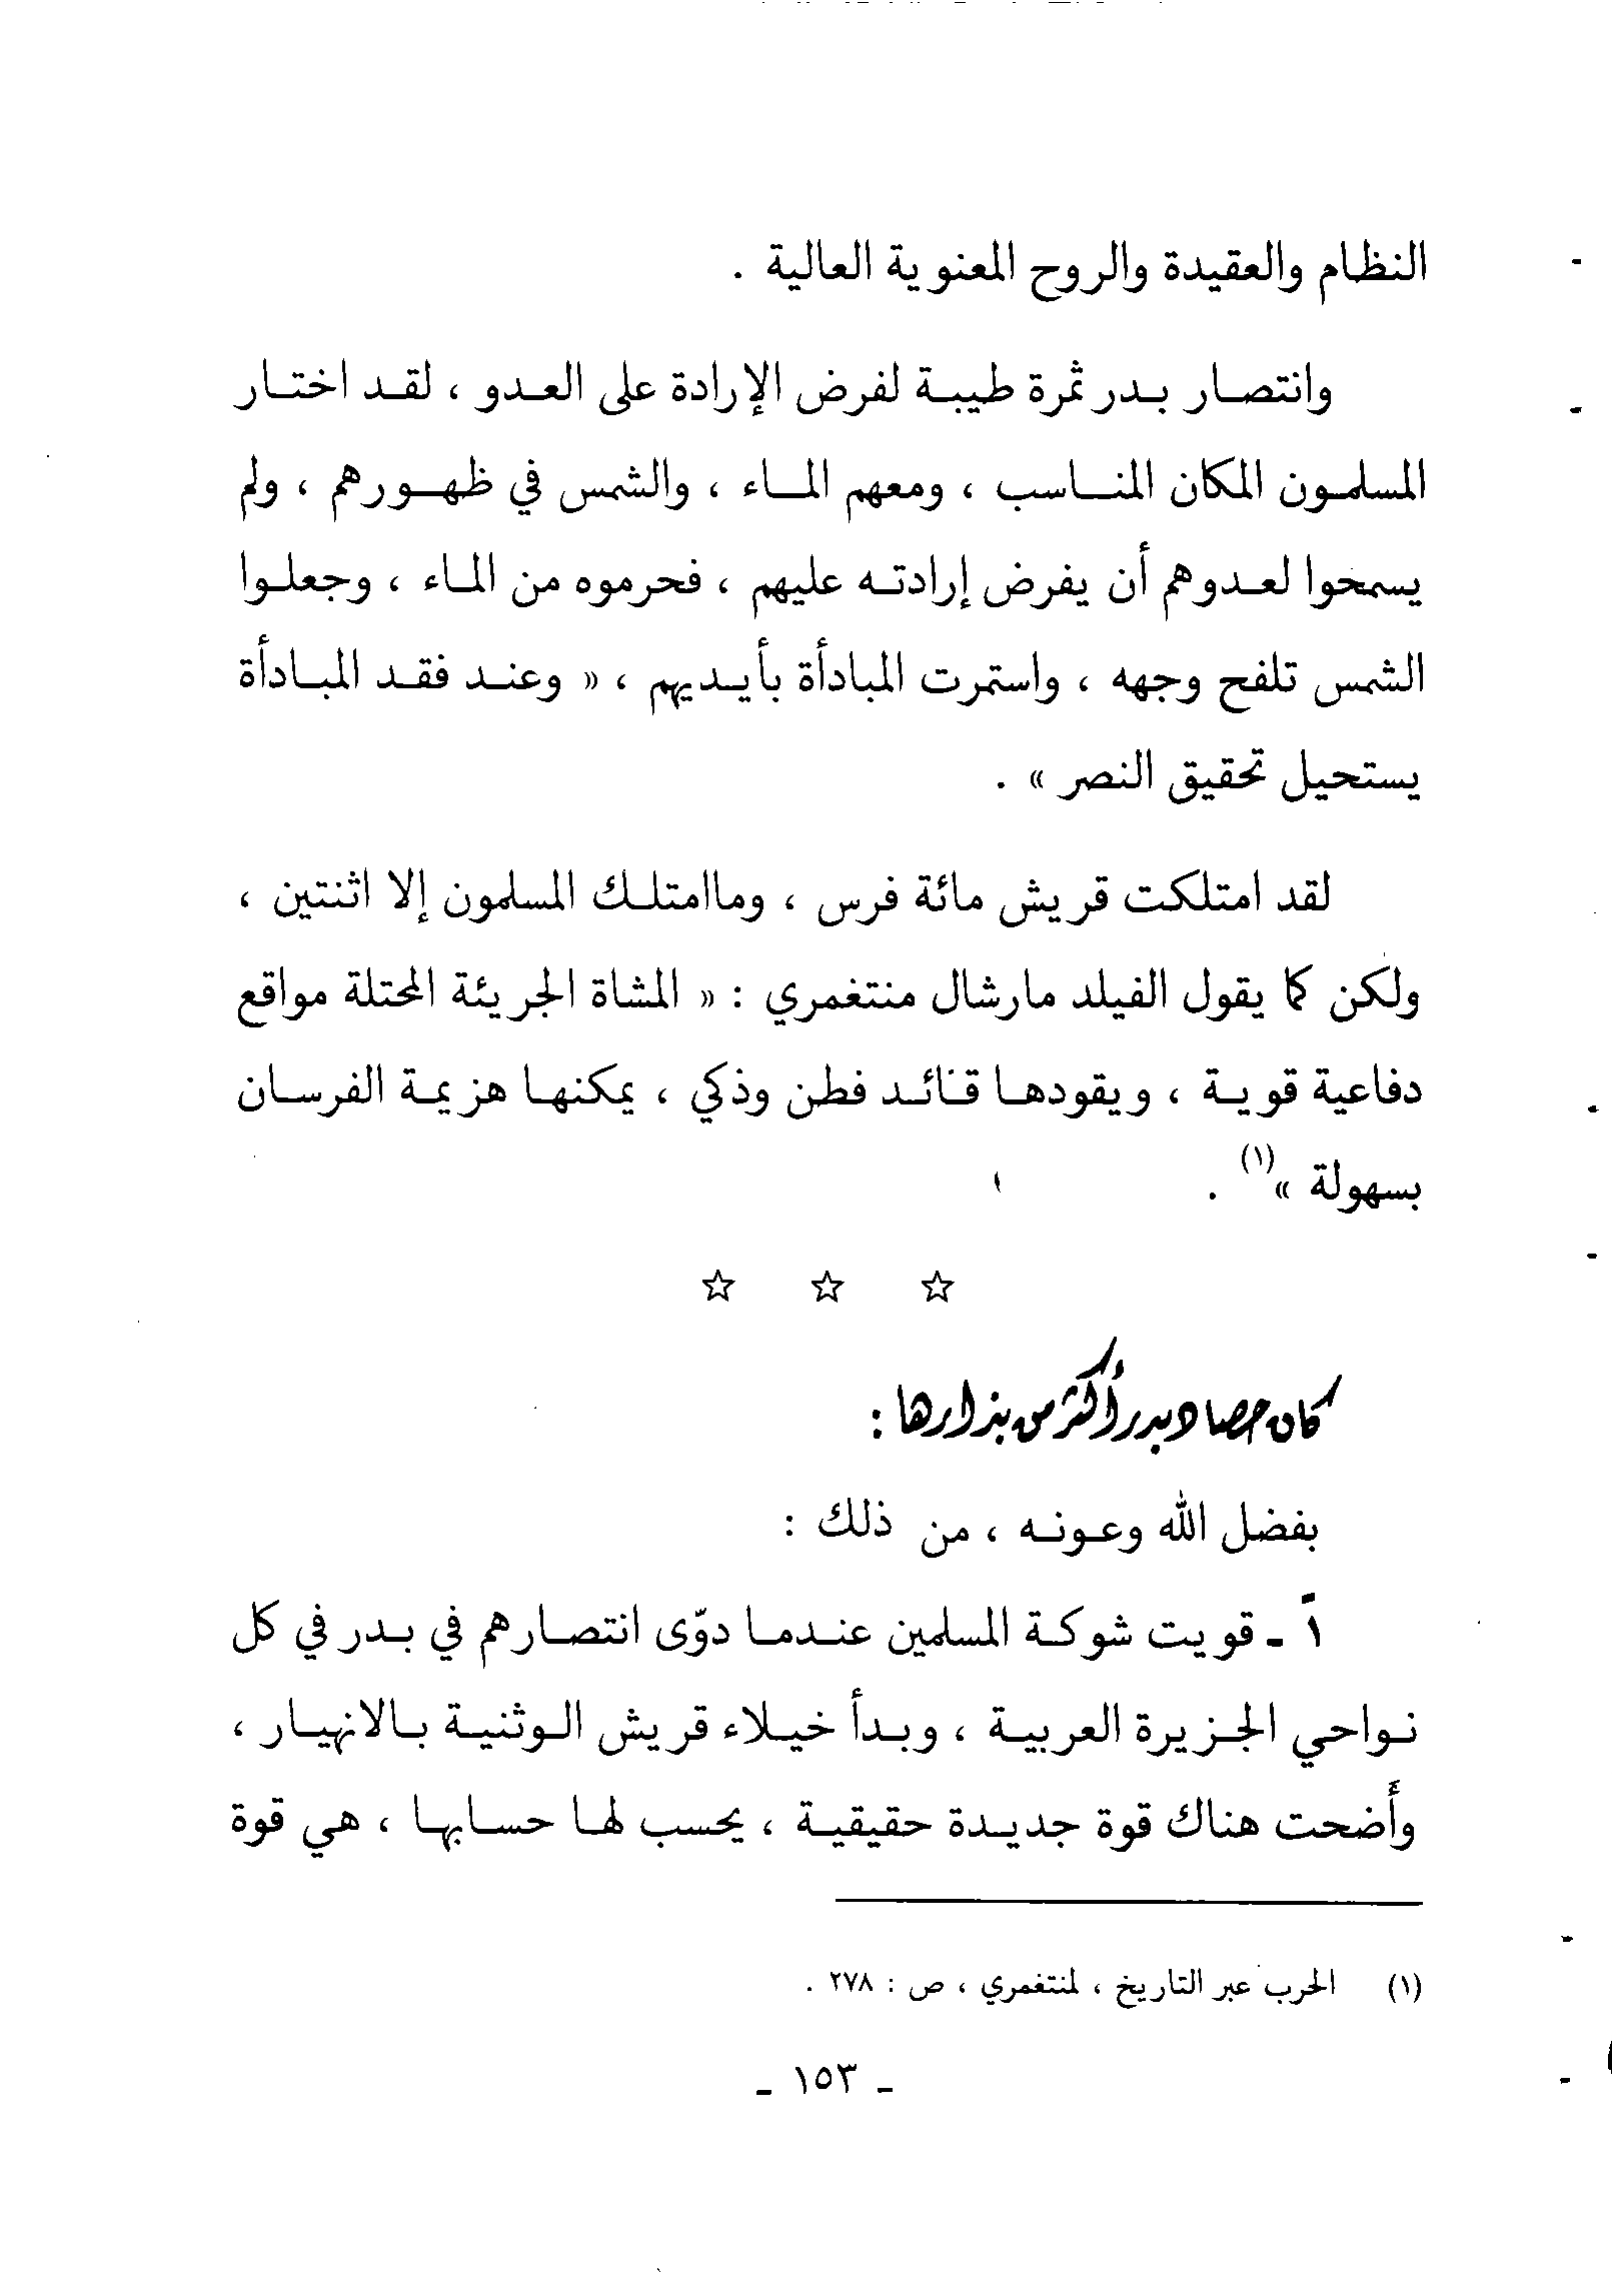 النظام والعقيدة والروح المعنوية العالية .
وانتصار بدر ثمرة طيبة لفرض الإرادة على العدو ، لقد اختار
المسلمون المكان المناسب ، ومعهم الماء ، والشمس في ظهورهم ، ولم
يسمحوا لعدوهم أن يفرض إرادته عليهم ، فحرموه من الماء ، وجعلوا
الشمس تلفح وجهه ، واستمرت المبادأة بأيديهم ، « وعند فقد المبادأة
يستحيل تحقيق النصر » .
لقد امتلكت قريش مائة فرس ، وماامتلك المسلمون إلا اثنتين ،
ولكن كما يقول الفيلد مارشال منتغمري : « المشاة الجريئة المحتلة مواقع
دفاعية قوية ، ويقودها قائد فطن وذكي ، يمكنها هزيمة الفرسان
بسهولة »(١) .
☆ ☆ ☆
كان حصاد بدر أكثر من بذارها :
بفضل الله وعونه ، من ذلك :
اً ـ قويت شوكة المسلمين عندما دوّى انتصارهم في بدر في كل
نواحي الجزيرة العربية ، وبدأ خيلاء قريش الوثنية بالانهيار ،
وأضحت هناك قوة جديدة حقيقية ، يحسب لها حسابها ، هي قوة
(١) الحرب عبر التاريخ ، لمنتغمري ، ص : ٢٧٨ .
ـ ١٥٣ ـ